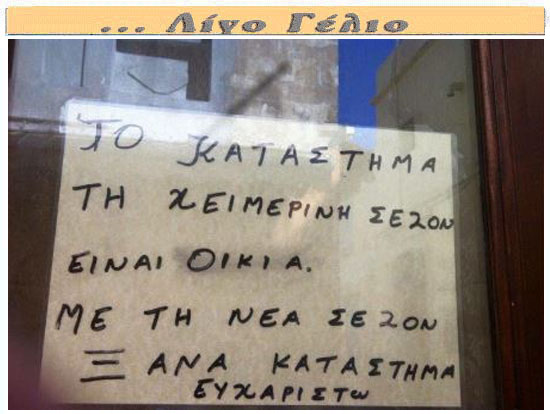 ... Λίγο Γέλιο
ΤΟ ΚΑΤΑΣΤΗΜΑ
ΤΗ ΧΕΙΜΕΡΙΝΗ ΣΕΖΟΝ
ΕΙΝΑΙ ΟΙΚΙΑ.
ΜΕ ΤΗ ΝΕΑ ΣΕΖΟΝ
ΞΑΝΑ ΚΑΤΑΣΤΗΜΑ
ΕΥΧΑΡΙΣΤω